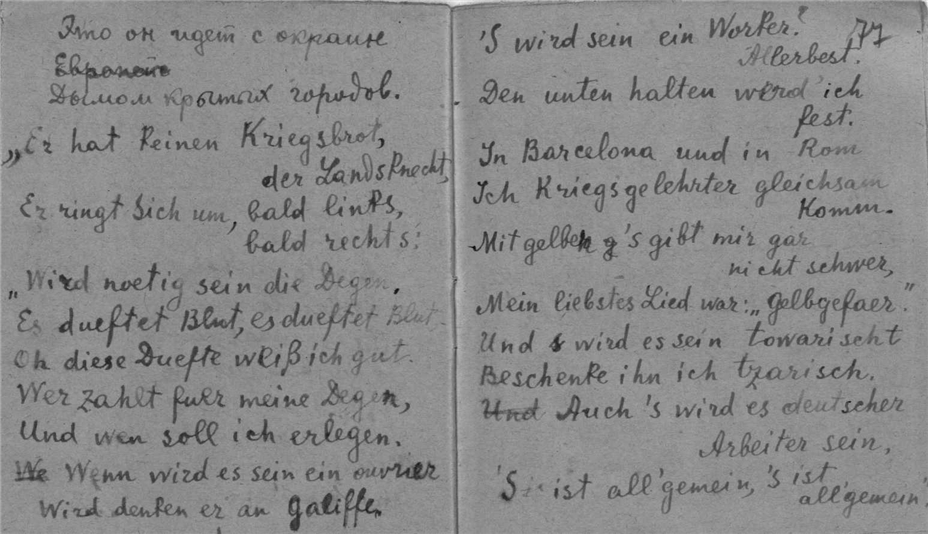 Это он идет с окраине
Европейс
Дымом крытых городов.
„Er hat keinen Kriegsbrot,
der Landsknecht,
Er ringt sich um, bald links,
bald rechts:
„Wird noetig sein die Degen.
Es dueftet Blut, es dueftet Blut.
Oh diese Duefte weiß ich gut.
Wer zahlt fuer meine Degen,
Und wen soll ich erlegen.
We Wenn wird es sein ein ouvrier
Wird denken er an Galiffe.
77
'S wird sein ein Worker?
Allerbest.
Den unten halten werd' ich
fest.
In Barcelona und in Rom
Ich Kriegsgelehrter gleichsam
Komm.
Mit gelben g's gibt mir gar
nicht schwer,
Mein liebstes Lied war: „gelbgefaer."
Und s wird es sein towarischt
Beschenke ihn ich tzarisch.
Und Auch 's wird es deutscher
Arbeiter sein,
'S ist all'gemein, 's ist
all'gemein'.